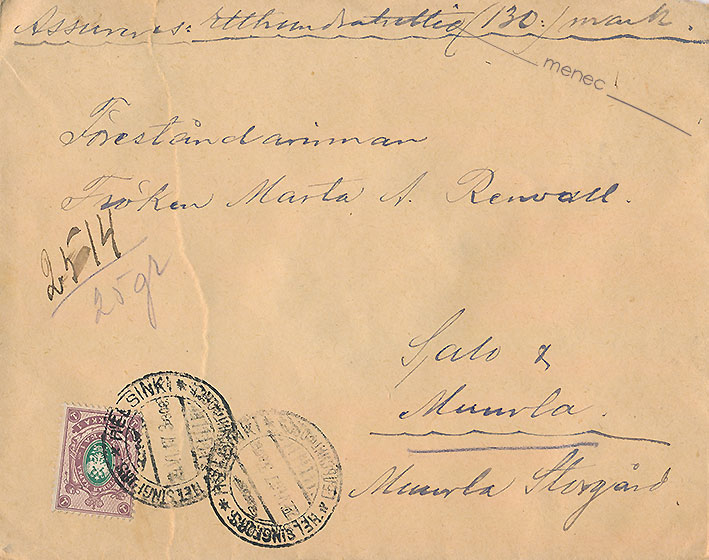 Assureras: Etthundratrettio (130:) mark.
menec
Föreståndarinnan
Fröken Marta A. Renvall.
2514
25 gr
Salo &
Muurla.
Muurla Storgård
HELSINGFORS * HELSINKI *
HELSINGFORS *